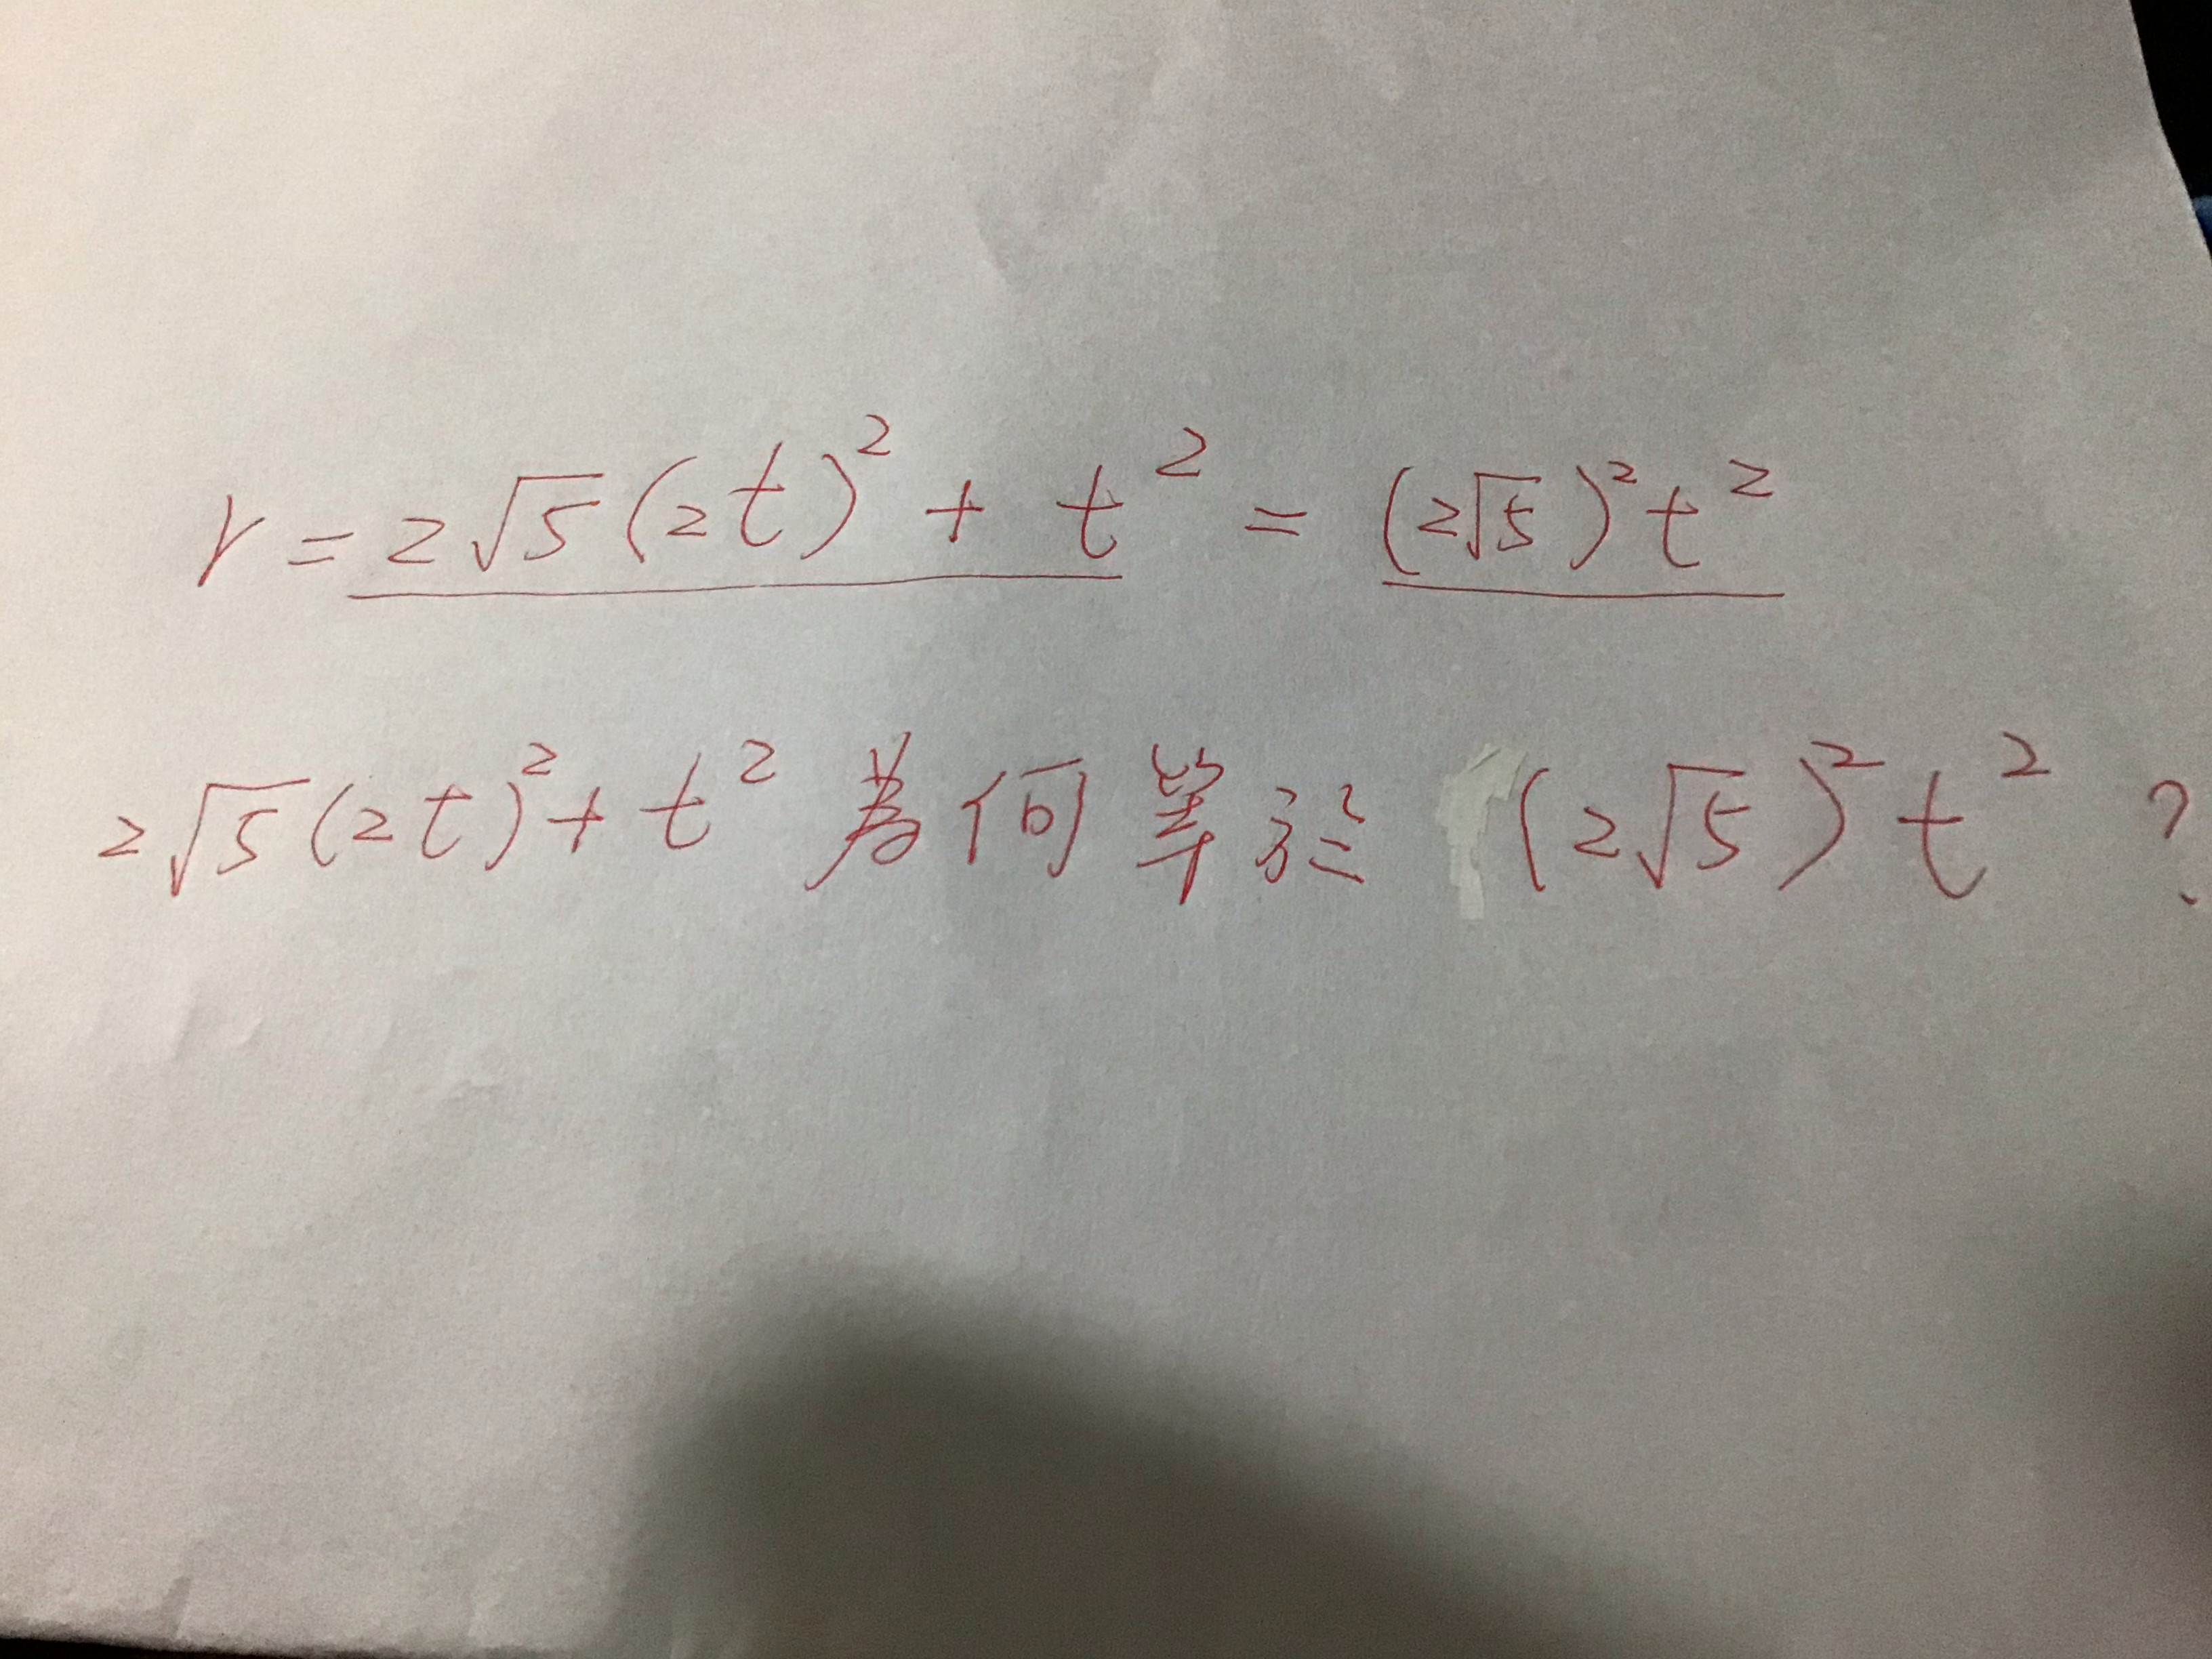 r = 2√5(2t)² + t² = (2√5)²t²
2√5(2t)² + t² 為何等於 (2√5)²t² ?